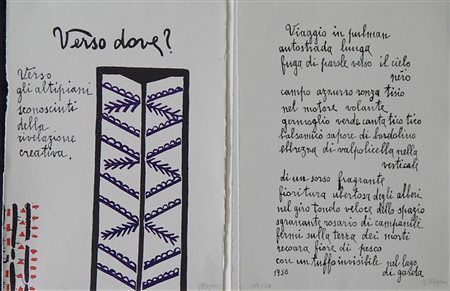 Verso dove?
Verso
gli altipiani
sconosciuti
della
rivelazione
creativa.
Viaggio in pulman
autostrada lunga
fuga di parole verso il cielo
nero
campo azzurro ronza tisio
nel motore volante
germoglio verde canta tico tico
balsamico sapore di bardolino
ebbrezza di valpolicella nella
verticale
di un sorso fragrante
fioritura ubertosa degli alberi
nel giro tondo veloce dello spazio
sgranante rosario di campanili
fermi sulla terra dei morti
recoara fiore di pesco
con un tuffo invisibile nel lago
1950 di garda